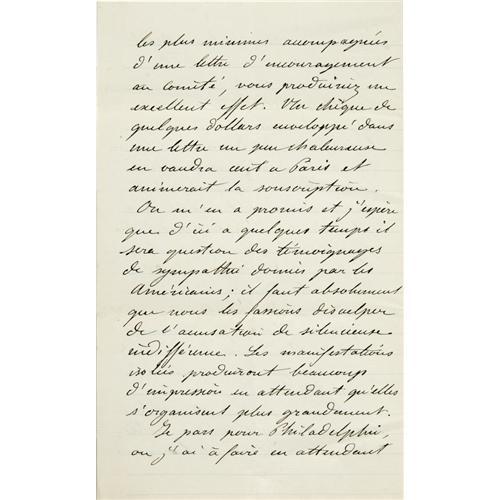 les plus minimes accompagnées
d'une lettre d'encouragement
au comité, vous produiriez un
excellent effet. Un chèque de
quelques dollars enveloppé dans
une lettre un peu chaleureuse
en vaudra cent a Paris et
animerait la souscription.
On m'en a promis et j'espère
que d'ici a quelques temps il
sera question des témoignages
de sympathie donnés par les
Américains; il faut absolument
que nous les fassions disculper
de l'accusation de silencieuse
indifférence. Les manifestations
isolées produiront beaucoup
d'impression en attendant qu'elles
s'organisent plus grandement.
Je pars pour Philadelphie,
ou j'ai à faire en attendant